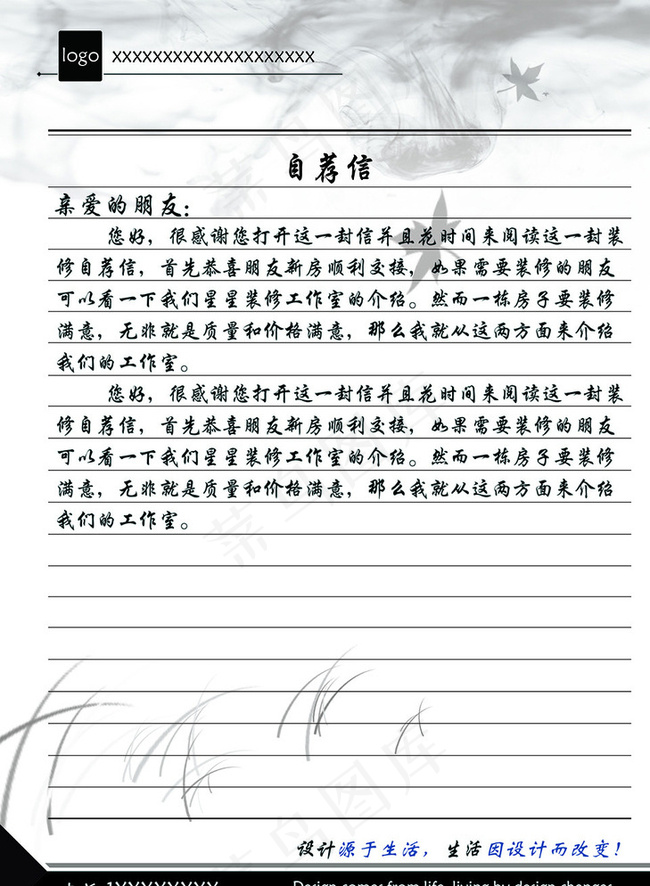 logo XXXXXXXXXXXXXXXXXXXX
自荐信
亲爱的朋友：
您好，很感谢您打开这一封信并且花时间来阅读这一封装
修自荐信，首先恭喜朋友新房顺利交接，如果需要装修的朋友
可以看一下我们星星装修工作室的介绍。然而一栋房子要装修
满意，无非就是质量和价格满意，那么我就从这两方面来介绍
我们的工作室。
您好，很感谢您打开这一封信并且花时间来阅读这一封装
修自荐信，首先恭喜朋友新房顺利交接，如果需要装修的朋友
可以看一下我们星星装修工作室的介绍。然而一栋房子要装修
满意，无非就是质量和价格满意，那么我就从这两方面来介绍
我们的工作室。
设计源于生活，生活因设计而改变！
Design comes from life, living by design changes
菜鸟图库